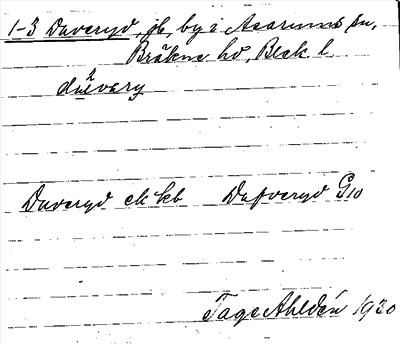 1-3 Daveryd, jb, by i Asarums sn,
Bräkne hd, Blek. l.
Daveryd ek kb Dafveryd G10
Tage Ahldén 1930